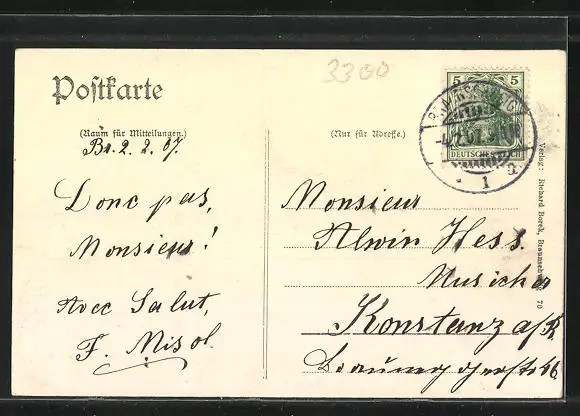 3300
Postkarte
(Raum für Mitteilungen.)
Br. 2. 2. 07.
Donc pas,
Monsieur!
Avec Salut,
F. Misol
(Nur für Adresse.)
Monsieur
Alwin Hess.
Konstanz a/R.
5 5
DEUTSCHES REICH
BRAUNSCHWEIG
1
Verlag: Richard Borek, Braunschweig 70